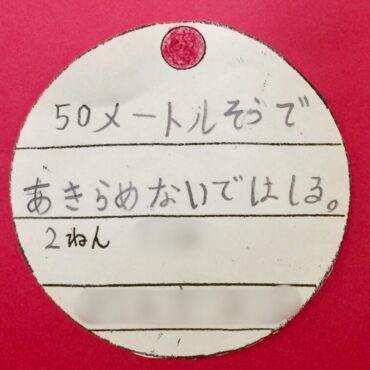 50メートルそうで
あきらめないではしる。
2ねん